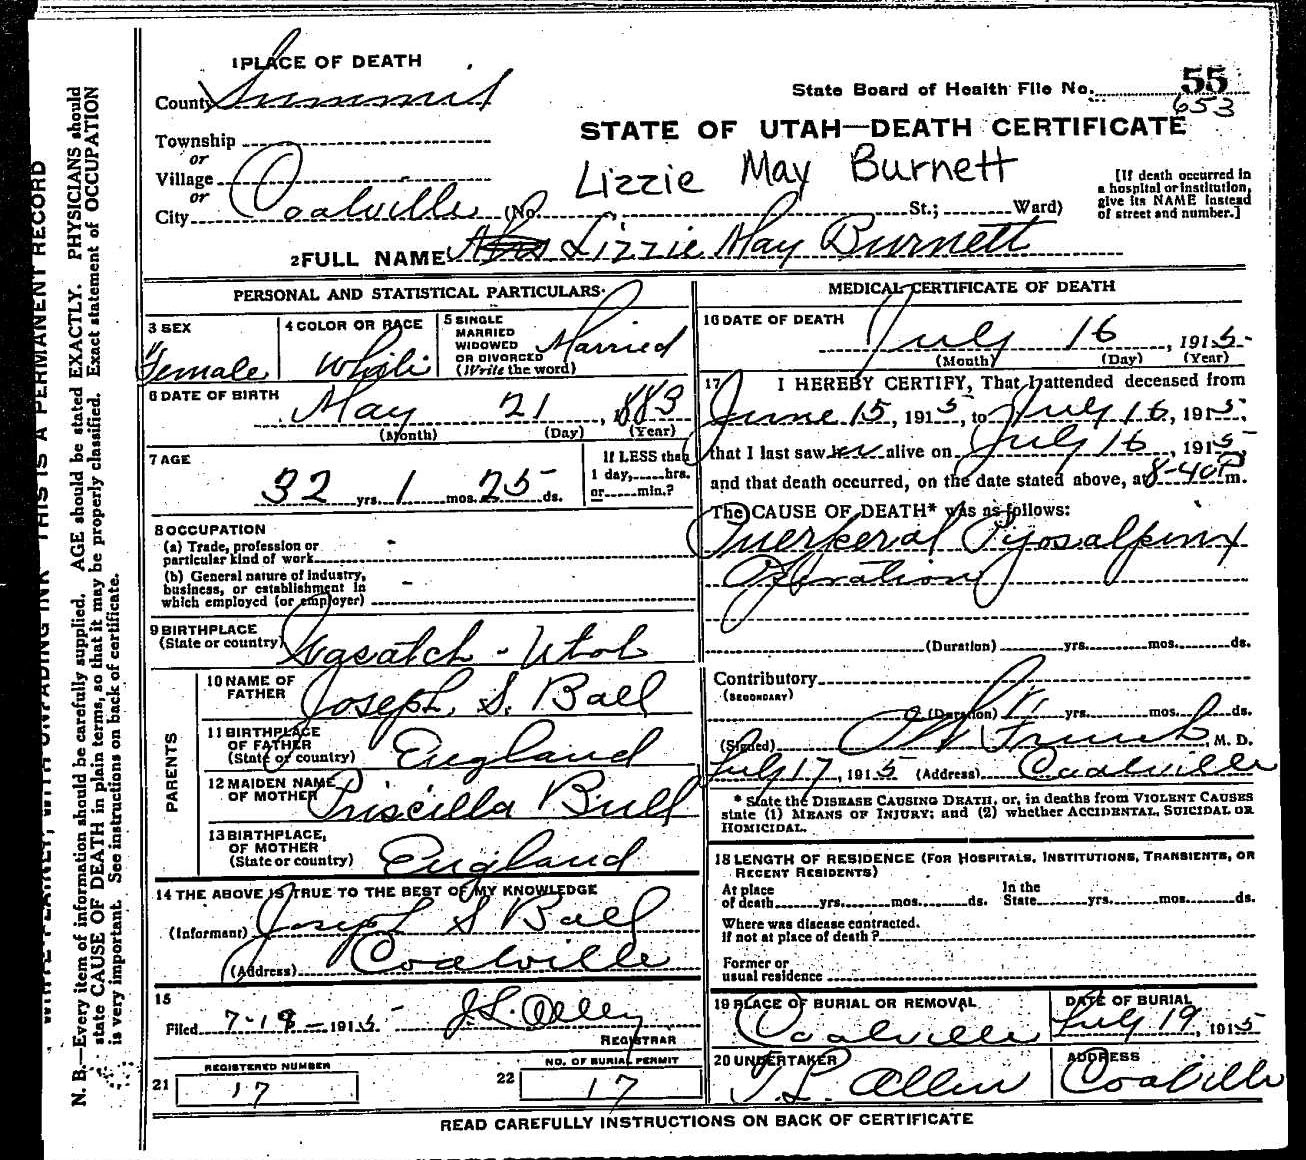 1 PLACE OF DEATH
County Summit
State Board of Health File No. 55
653
STATE OF UTAH—DEATH CERTIFICATE
Township
or
Village
or
City Coalville (No. St.; Ward)
Lizzie May Burnett
[If death occurred in
a hospital or institution,
give its NAME instead
of street and number.]
2 FULL NAME Lizzie May Burnett
PERSONAL AND STATISTICAL PARTICULARS
3 SEX
Female
4 COLOR OR RACE
White
5 SINGLE
MARRIED
WIDOWED
OR DIVORCED
(Write the word)
Married
6 DATE OF BIRTH
May 21, 1883
(Month) (Day) (Year)
7 AGE
32 yrs. 1 mos. 25 ds.
If LESS than
1 day, hrs.
or min.?
8 OCCUPATION
(a) Trade, profession or
particular kind of work
(b) General nature of industry,
business, or establishment in
which employed (or employer)
9 BIRTHPLACE
(State or country)
Wasatch - Utah
PARENTS
10 NAME OF
FATHER
Joseph S. Ball
11 BIRTHPLACE
OF FATHER
(State or country)
England
12 MAIDEN NAME
OF MOTHER
Priscilla Bull
13 BIRTHPLACE,
OF MOTHER
(State or country)
England
14 THE ABOVE IS TRUE TO THE BEST OF MY KNOWLEDGE
(Informant) Joseph S Ball
(Address) Coalville
15
Filed 7-19-1915 J.L.
REGISTRAR
REGISTERED NUMBER
21 17
NO. OF BURIAL PERMIT
22 17
MEDICAL CERTIFICATE OF DEATH
16 DATE OF DEATH
July 16, 1915
(Month) (Day) (Year)
17 I HEREBY CERTIFY, That I attended deceased from
June 15, 1915, to July 16, 1915,
that I last saw her alive on July 16, 1915
and that death occurred, on the date stated above, at 8-40P m.
The CAUSE OF DEATH* was as follows:
Puerperal Pyosalpinx
Operation
(Duration) yrs. mos. ds.
Contributory
(SECONDARY)
(Duration) yrs. mos. ds.
(Signed) M. D.
July 17, 1915 (Address) Coalville
* State the DISEASE CAUSING DEATH, or, in deaths from VIOLENT CAUSES
state (1) MEANS OF INJURY; and (2) whether ACCIDENTAL, SUICIDAL OR
HOMICIDAL.
18 LENGTH OF RESIDENCE (FOR HOSPITALS, INSTITUTIONS, TRANSIENTS, OR
RECENT RESIDENTS)
At place
of death yrs. mos. ds.
In the
State yrs. mos. ds.
Where was disease contracted.
if not at place of death?
Former or
usual residence
19 PLACE OF BURIAL OR REMOVAL
Coalville
DATE OF BURIAL
July 19, 1915
20 UNDERTAKER
Allen
ADDRESS
Coalville
READ CAREFULLY INSTRUCTIONS ON BACK OF CERTIFICATE
WRITE PLAINLY, WITH UNFADING INK—THIS IS A PERMANENT RECORD
N. B.—Every item of information should be carefully supplied. AGE should be stated EXACTLY. PHYSICIANS should
state CAUSE OF DEATH in plain terms, so that it may be properly classified. Exact statement of OCCUPATION
is very important. See instructions on back of certificate.